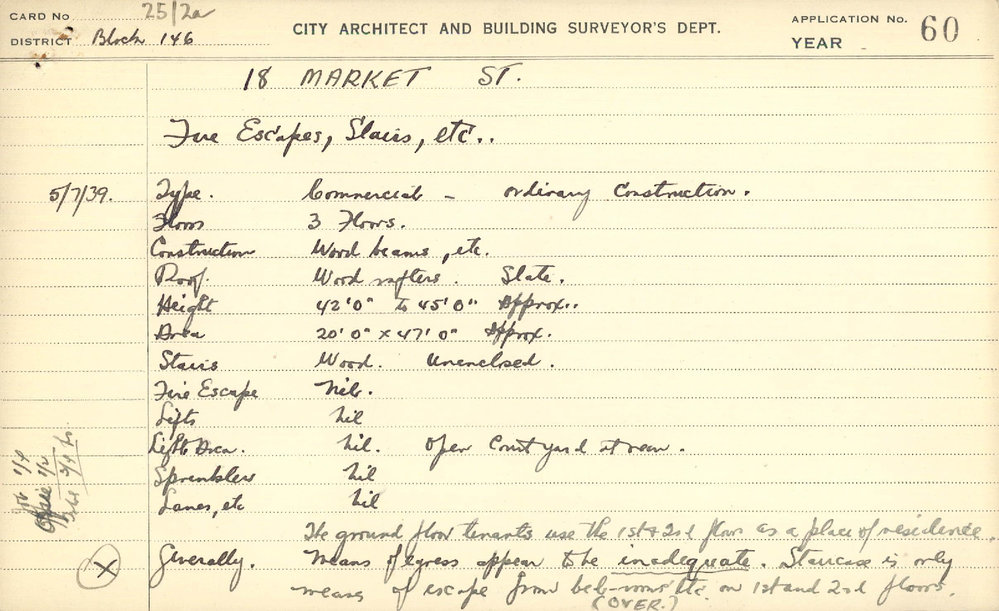 CARD No. 25/2a
DISTRICT Block 146
CITY ARCHITECT AND BUILDING SURVEYOR'S DEPT.
APPLICATION No. 60
YEAR
18 MARKET ST.
Fire Escapes, Stairs, etc..
5/7/39.
Type. Commercial - ordinary Construction.
Floors 3 Floors.
Construction Wood beams, etc.
Roof. Wood rafters. Slate.
Height 42'0" to 45'0" Approx..
Area 20'0" x 47'0" Approx.
Stairs Wood. Unenclosed.
Fire Escape Nil.
Lifts Nil
Light Area. Nil. Open Court yard at rear.
Sprinklers Nil
Lanes, etc Nil
The ground floor tenants use the 1st & 2nd floor as a place of residence.
Generally. Means of egress appear to be inadequate. Staircase is only
means of escape from bed-rooms etc. on 1st and 2nd floors.
(OVER.)
X